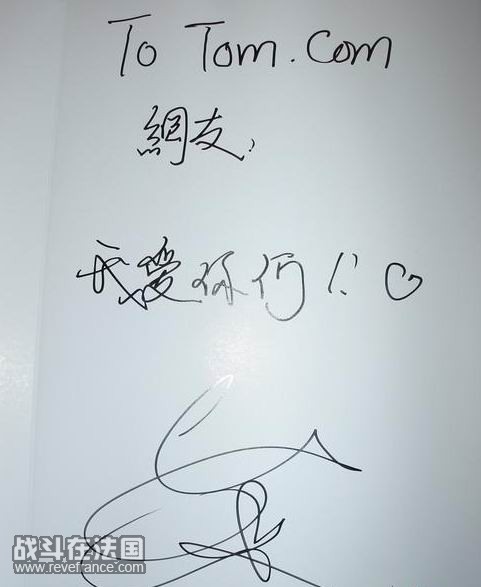 To Tom.Com
網友,
我愛你们!!
战斗在法国
www.revefrance.com